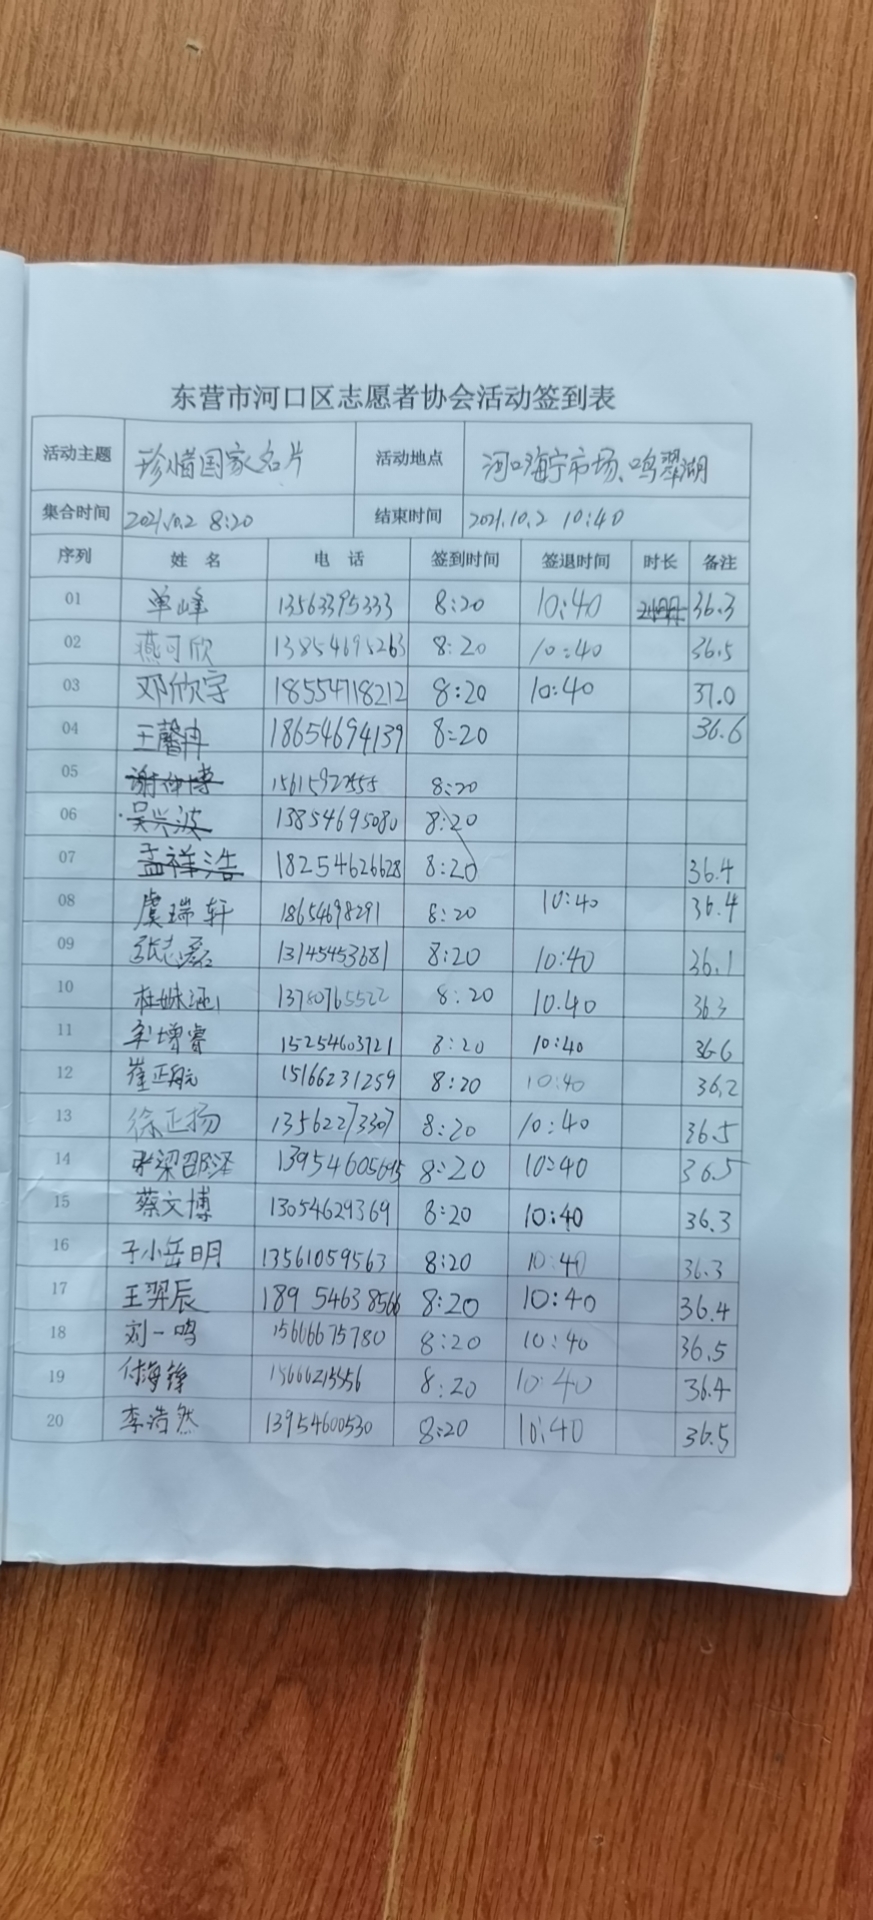 东营市河口区志愿者协会活动签到表
活动主题 珍惜国家名片 活动地点 河口海宁市场、鸣翠湖
集合时间 2021.10.2 8:20 结束时间 2021.10.2 10:40
序列 姓 名 电 话 签到时间 签退时间 时长 备注
01 单峰 13563395333 8:20 10:40 36.3
02 燕可欣 13854695263 8:20 10:40 36.5
03 邓欣宇 18554718212 8:20 10:40 37.0
04 王馨冉 18654694139 8:20 36.6
05 谢仲博 8:20
06 吴兴波 13854695080 8:20
07 孟祥浩 18254626628 8:20 36.4
08 虞瑞轩 18654698291 8:20 10:40 36.4
09 13145453681 8:20 10:40 36.1
10 13780765522 8:20 10.40 36.3
11 15254603721 8:20 10:40 36.6
12 崔正航 15166231259 8:20 10:40 36.2
13 徐正扬 13562273307 8:20 10:40 36.5
14 8:20 10:40 36.5
15 蔡文博 13054629369 8:20 10:40 36.3
16 子小岳明 13561059563 8:20 10:40 36.3
17 王羿辰 189 5463 8566 8:20 10:40 36.4
18 刘一鸣 15606675780 8:20 10:40 36.5
19 付海锋 8:20 10:40 36.4
20 李浩然 13954600530 8:20 10:40 36.5